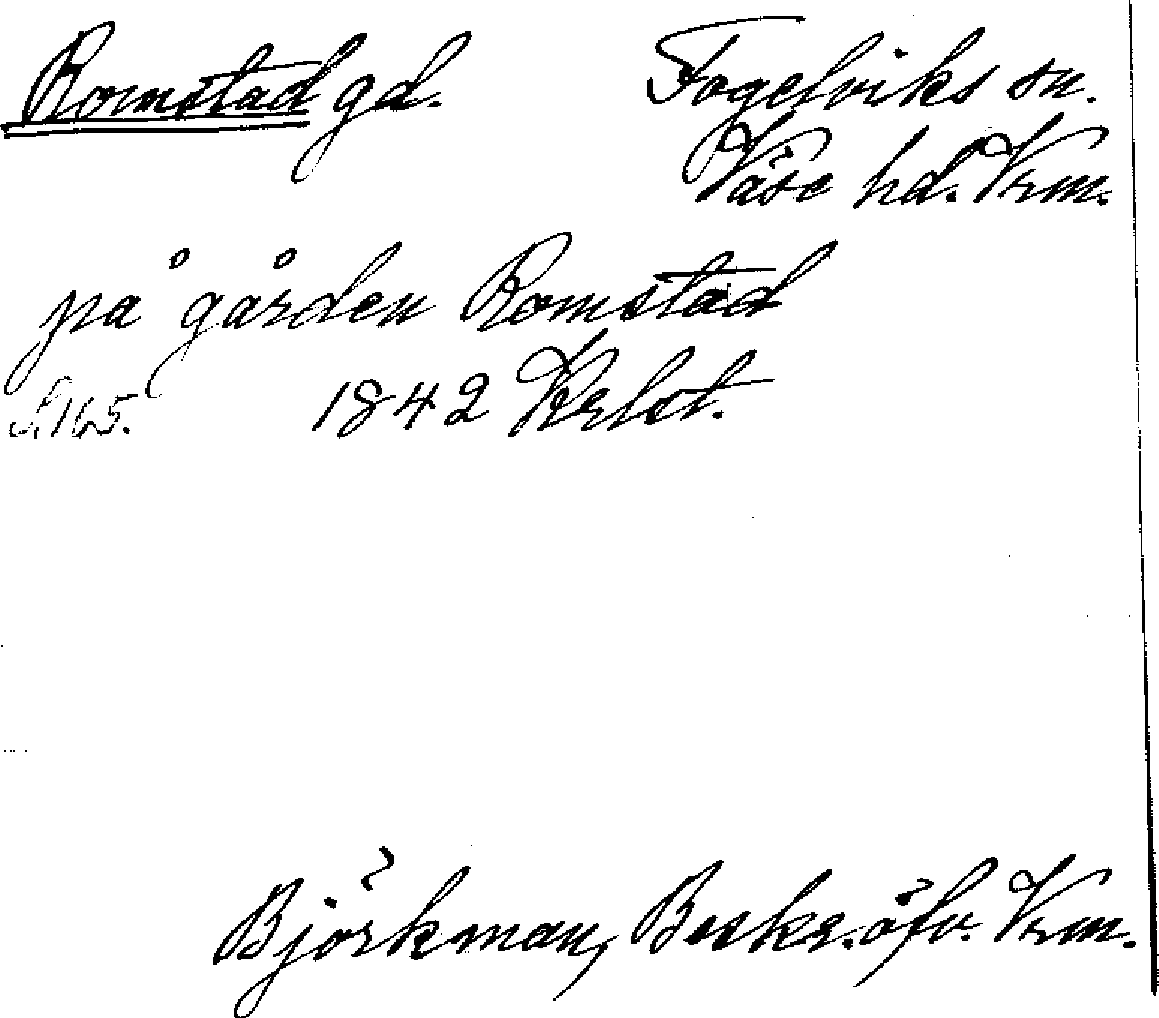 Romstad gd. Fogelviks sn.
Väse hd. Vrm.
på gården Romstad
S. 165. 1842
Björkman, Beskr. öfv. Vrm.